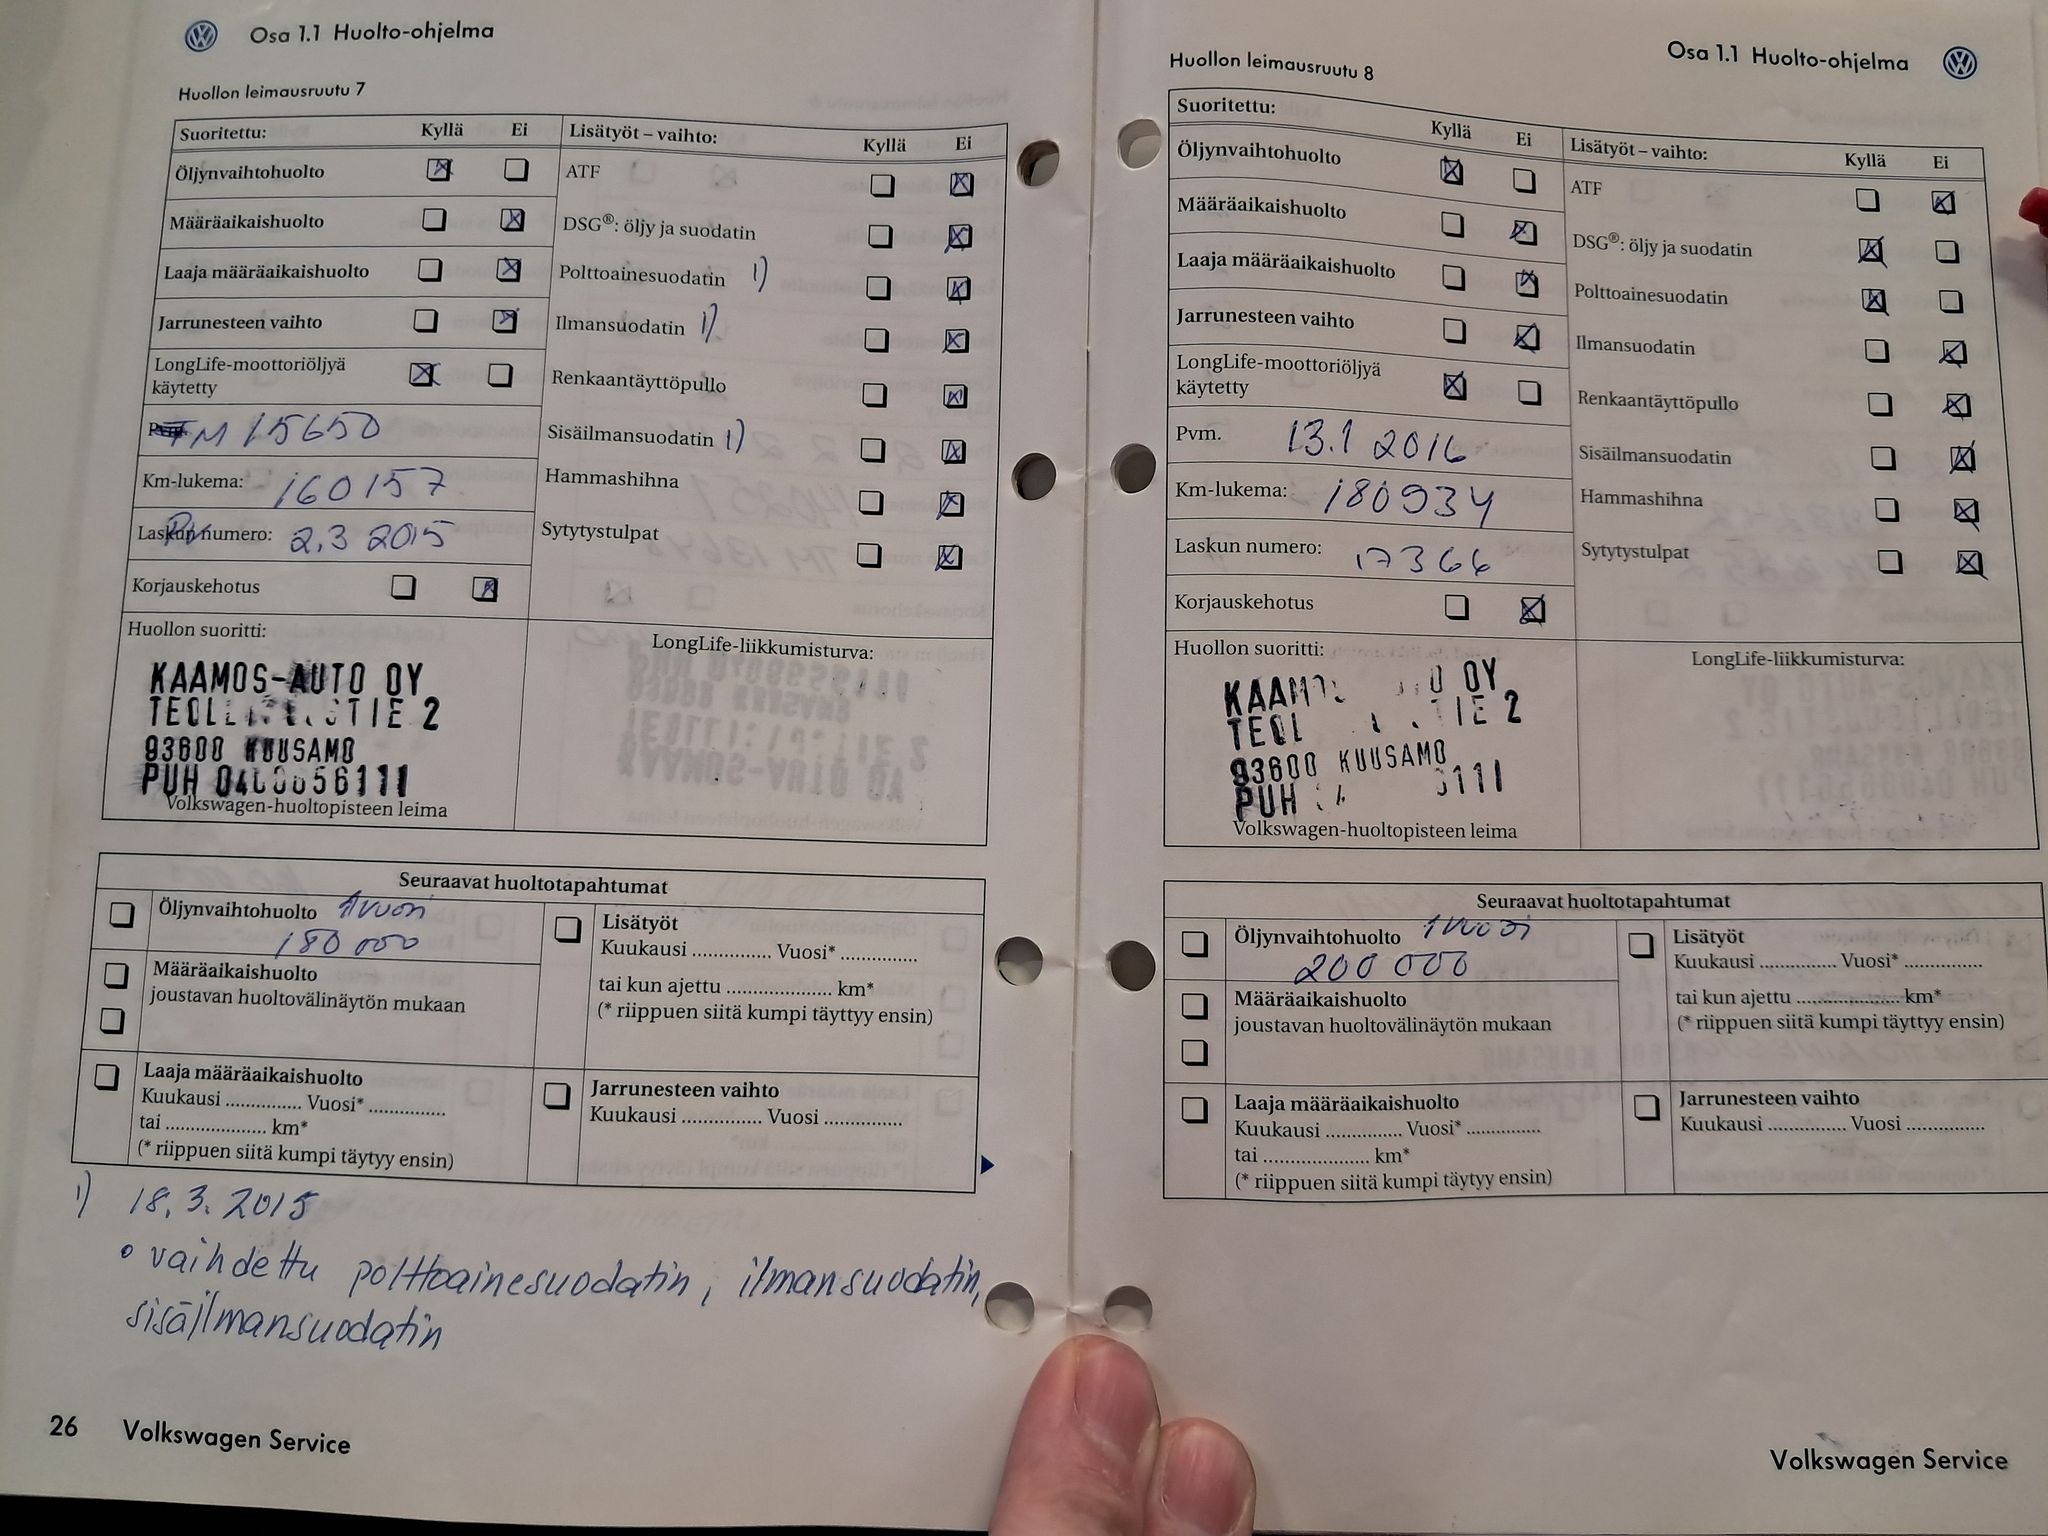 Osa 1.1 Huolto-ohjelma
Huollon leimausruutu 7
Suoritettu: Kyllä Ei
Öljynvaihtohuolto
Määräaikaishuolto
Laaja määräaikaishuolto
Jarrunesteen vaihto
LongLife-moottoriöljyä
käytetty
TM 15650
Km-lukema: 160157
Laskun numero: 2.3 2015
Korjauskehotus
Lisätyöt – vaihto: Kyllä Ei
ATF
DSG®: öljy ja suodatin
Polttoainesuodatin 1)
Ilmansuodatin 1)
Renkaantäyttöpullo
Sisäilmansuodatin 1)
Hammashihna
Sytytystulpat
Huollon suoritti:
KAAMOS-AUTO OY
2
93600 KUUSAMO
PUH
Volkswagen-huoltopisteen leima
LongLife-liikkumisturva:
Seuraavat huoltotapahtumat
Öljynvaihtohuolto 1 vuosi
180 000
Määräaikaishuolto
joustavan huoltovälinäytön mukaan
Lisätyöt
Kuukausi .............. Vuosi* ..............
tai kun ajettu .................... km*
(* riippuen siitä kumpi täyttyy ensin)
Laaja määräaikaishuolto
Kuukausi .............. Vuosi* ..............
tai .................... km*
(* riippuen siitä kumpi täytyy ensin)
Jarrunesteen vaihto
Kuukausi .............. Vuosi ..............
1) 18.3.2015
• vaihdettu polttoainesuodatin, ilmansuodatin,
sisäilmansuodatin
26 Volkswagen Service
Osa 1.1 Huolto-ohjelma
Huollon leimausruutu 8
Suoritettu: Kyllä Ei
Öljynvaihtohuolto
Määräaikaishuolto
Laaja määräaikaishuolto
Jarrunesteen vaihto
LongLife-moottoriöljyä
käytetty
Pvm. 13.1 2016
Km-lukema: 180934
Laskun numero: 17366
Korjauskehotus
Lisätyöt – vaihto: Kyllä Ei
ATF
DSG®: öljy ja suodatin
Polttoainesuodatin
Ilmansuodatin
Renkaantäyttöpullo
Sisäilmansuodatin
Hammashihna
Sytytystulpat
Huollon suoritti:
OY
2
93600 KUUSAMO
PUH
Volkswagen-huoltopisteen leima
LongLife-liikkumisturva:
Seuraavat huoltotapahtumat
Öljynvaihtohuolto 1 vuosi
200 000
Määräaikaishuolto
joustavan huoltovälinäytön mukaan
Lisätyöt
Kuukausi .............. Vuosi* ..............
tai kun ajettu .................... km*
(* riippuen siitä kumpi täyttyy ensin)
Laaja määräaikaishuolto
Kuukausi .............. Vuosi* ..............
tai .................... km*
(* riippuen siitä kumpi täytyy ensin)
Jarrunesteen vaihto
Kuukausi .............. Vuosi ..............
Volkswagen Service